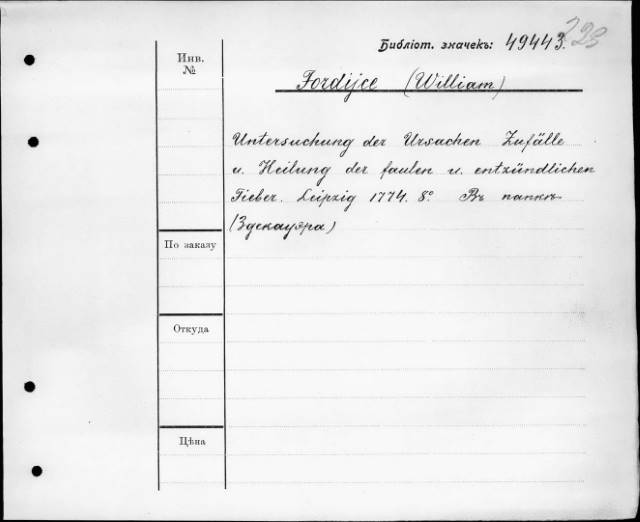 Библіот. значекъ: 49443. 223
Инв.
№
Fordijce (William)
Untersuchung der Ursachen Zufälle
u. Heilung der faulen u. entzündlichen
Fieber. Leipzig 1774. 8° Въ папкѣ
(Здекауэра)
По заказу
Откуда
Цѣна